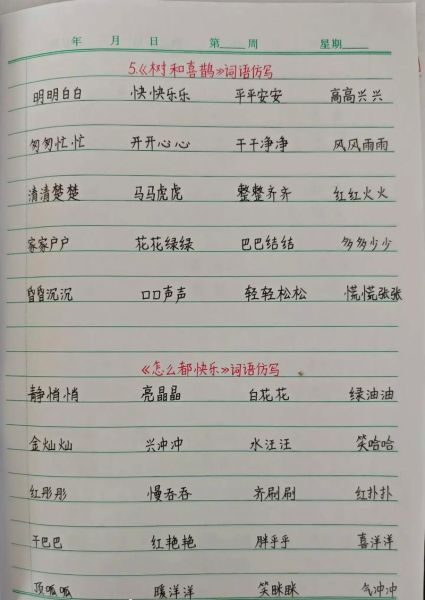 年 月 日 第 周 星期
5.《树和喜鹊》词语仿写
明明白白 快快乐乐 平平安安 高高兴兴
匆匆忙忙 开开心心 干干净净 风风雨雨
清清楚楚 马马虎虎 整整齐齐 红红火火
家家户户 花花绿绿 巴巴结结 多多少少
昏昏沉沉 口口声声 轻轻松松 慌慌张张
《怎么都快乐》词语仿写
静悄悄 亮晶晶 白花花 绿油油
金灿灿 兴冲冲 水汪汪 笑哈哈
红彤彤 慢吞吞 齐刷刷 红扑扑
干巴巴 红艳艳 胖乎乎 喜洋洋
顶呱呱 暖洋洋 笑眯眯 气冲冲